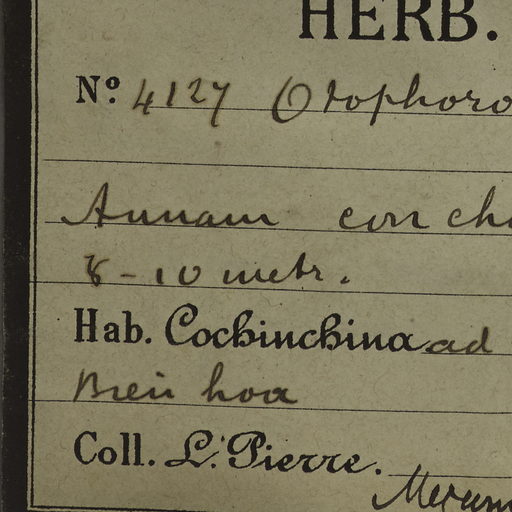 HERB.
Nº 4127 Otophora
Annam con cha
8-10 metr.
Hab. Cochinchina ad
Bien hoa
Coll. L. Pierre.